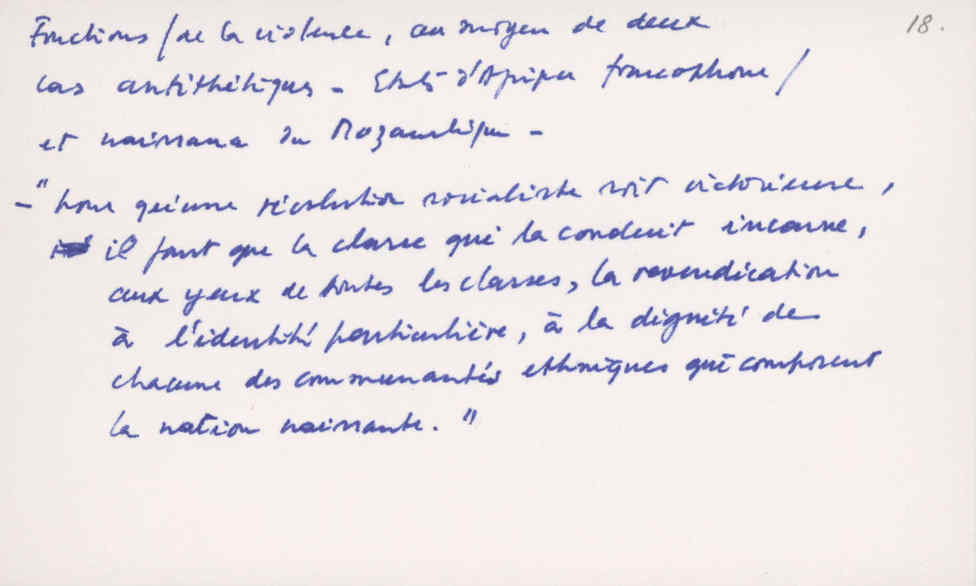 18.
Fonctions / de la violence, au moyen de deux
cas antithétiques - Etats d'Afrique francophone /
et naissance du Mozambique -
- "Pour qu'une révolution socialiste soit victorieuse,
il faut que la classe qui la conduit incarne,
aux yeux de toutes les classes, la revendication
à l'identité particulière, à la dignité de
chacune des communautés ethniques qui composent
la nation naissante."